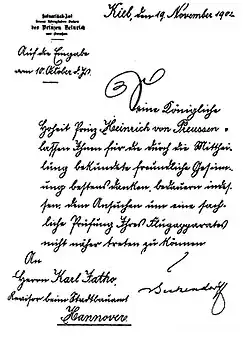 Hofmarschall-Amt
des Prinzen Heinrich
von Preussen
Kiel, den 19. November 1902
Auf die Eingabe
vom 10. Oktober d. Js.
Seine Königliche
Hoheit Prinz Heinrich von Preussen
lassen Ihnen für die durch die Mitthei-
lung bekundete freundliche Gesinn-
ung bestens danken, bedauern indes-
sen, dem Ansuchen um eine sach-
liche Prüfung Ihres Flugapparates
nicht näher treten zu können
An
Herrn Karl Jatho,
Revisor beim Stadtbauamt
Hannover.